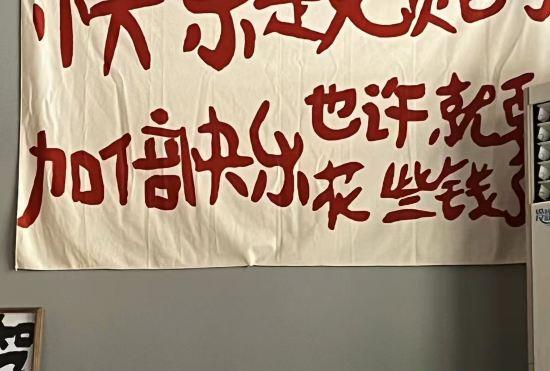 快乐是免
加倍快乐
也许,就要
花些钱